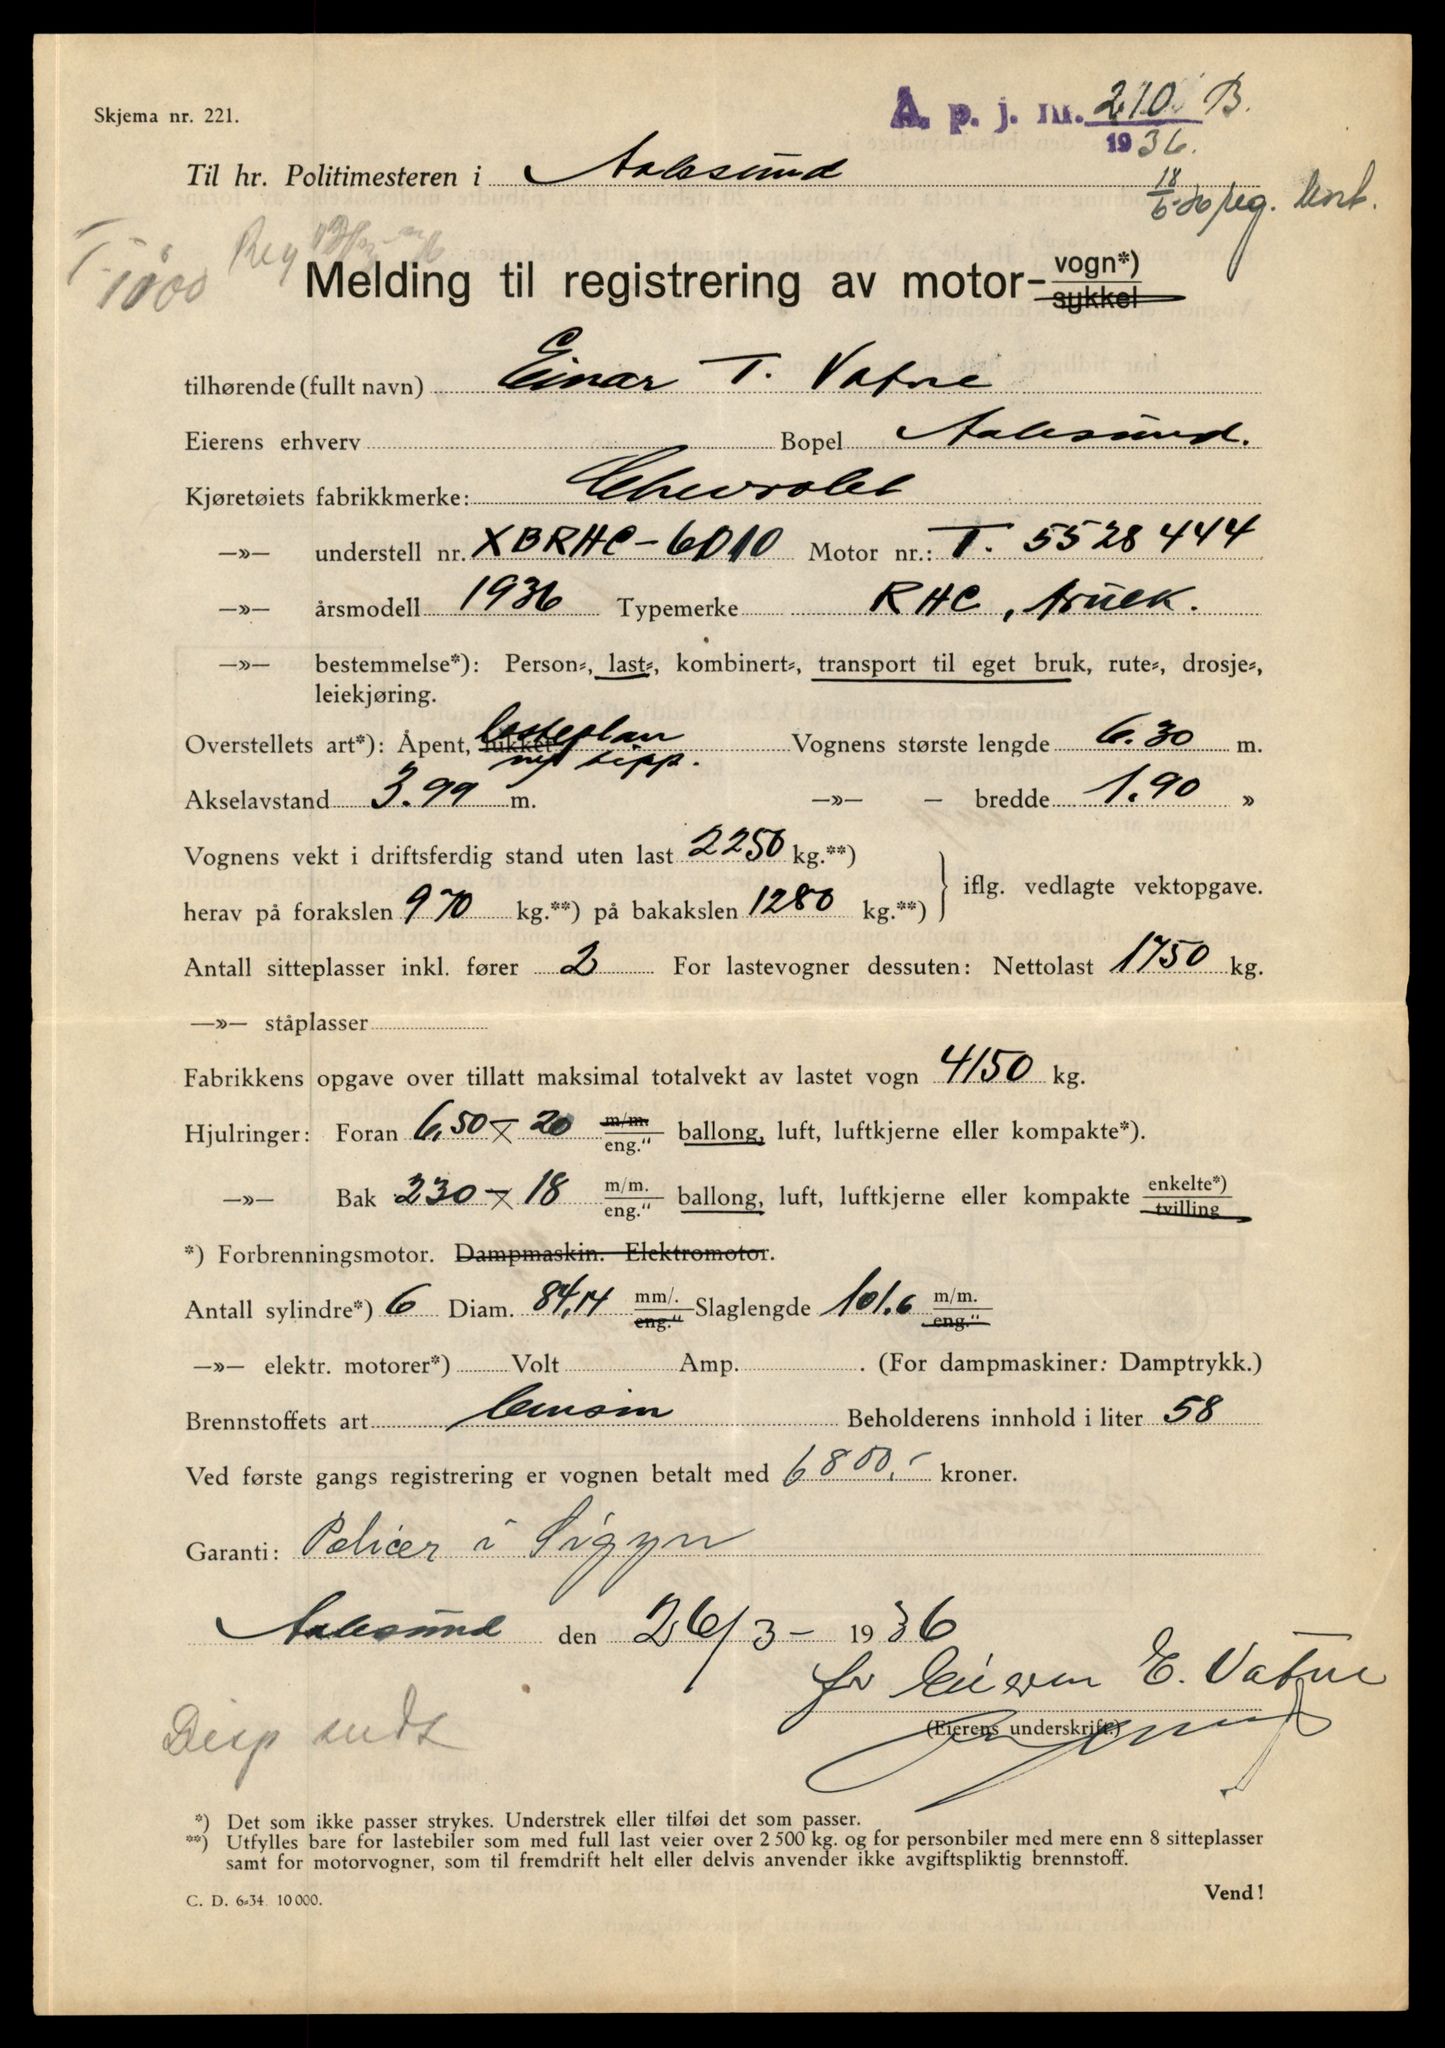 Skjema nr. 221.
A. p. j. nr. 210 B.
1936.
Til hr. Politimesteren i Aalesund
18/6-36 reg.
T-1000 Reg
Melding til registrering av motor- vogn*)
sykkel
tilhørende (fullt navn) Einar T. Vatne
Eierens erhverv Bopel Aalesund.
Kjøretøiets fabrikkmerke: Chevrolet
—»— understell nr. XBRHC-6010 Motor nr.: T. 5528444
—»— årsmodell 1936 Typemerke RHC, truck.
—»— bestemmelse*): Person-, last-, kombinert-, transport til eget bruk, rute-, drosje-,
leiekjøring.
Overstellets art*): Åpent, lukket lasteplan Vognens største lengde 6.30 m.
m/ tipp.
Akselavstand 3.99 m. —»— — bredde 1.90 »
Vognens vekt i driftsferdig stand uten last 2250 kg.**)
herav på forakslen 970 kg.**) på bakakslen 1280 kg.**) } iflg. vedlagte vektopgave.
Antall sitteplasser inkl. fører 2 For lastevogner dessuten: Nettolast 1750 kg.
—»— ståplasser
Fabrikkens opgave over tillatt maksimal totalvekt av lastet vogn 4150 kg.
Hjulringer: Foran 6,50 x 20 m/m. eng." ballong, luft, luftkjerne eller kompakte*).
—»— Bak 230 x 18 m/m. eng." ballong, luft, luftkjerne eller kompakte enkelte*) tvilling
*) Forbrenningsmotor. Dampmaskin. Elektromotor.
Antall sylindre*) 6 Diam. 84,14 mm/. eng." Slaglengde 101.6 m/m. eng."
—»— elektr. motorer*) Volt Amp. . (For dampmaskiner: Damptrykk.)
Brennstoffets art Bensin Beholderens innhold i liter 58
Ved første gangs registrering er vognen betalt med 6800,- kroner.
Garanti: Policer i Sigyn
Aalesund den 26/3- 1936
for Eieren E. Vatne
(Eierens underskrift.)
Disp sendt
*) Det som ikke passer strykes. Understrek eller tilføi det som passer.
**) Utfylles bare for lastebiler som med full last veier over 2 500 kg. og for personbiler med mere enn 8 sitteplasser
samt for motorvogner, som til fremdrift helt eller delvis anvender ikke avgiftspliktig brennstoff.
C. D. 6-34. 10 000.
Vend!